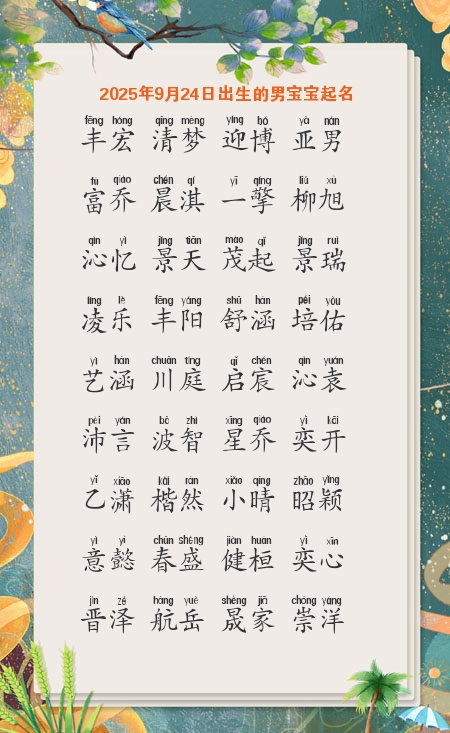 2025年9月24日出生的男宝宝起名
fēng hóng qīng mèng yíng bó yà nán
丰宏 清梦 迎博 亚男
fù qiáo chén qí yī qíng liǔ xù
富乔 晨淇 一擎 柳旭
qìn yì jǐng tiān mào qǐ jǐng ruì
沁忆 景天 茂起 景瑞
líng lè fēng yáng shū hán péi yòu
凌乐 丰阳 舒涵 培佑
yì hán chuān tíng qǐ chén qìn yuán
艺涵 川庭 启宸 沁袁
pèi yán bō zhì xīng qiáo yì kāi
沛言 波智 星乔 奕开
yǐ xiāo kǎi rán xiǎo qíng zhāo yǐng
乙潇 楷然 小晴 昭颖
yì yì chūn shèng jiàn huán yì xīn
意懿 春盛 健桓 奕心
jìn zé háng yuè shèng jiā chóng yáng
晋泽 航岳 晟家 崇洋